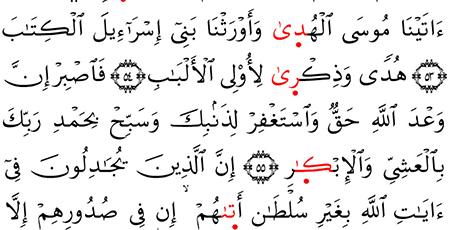 ءَاتَيْنَا مُوسَى ٱلْهُدىٰ وَأَوْرَثْنَا بَنِىٓ إِسْرَٰٓءِيلَ ٱلْكِتَٰبَ
۝٥٣ هُدًى وَذِكْرىٰ لِأُو۟لِى ٱلْأَلْبَٰبِ ۝٥٤ فَٱصْبِرْ إِنَّ
وَعْدَ ٱللَّهِ حَقٌّ وَٱسْتَغْفِرْ لِذَنۢبِكَ وَسَبِّحْ بِحَمْدِ رَبِّكَ
بِٱلْعَشِىِّ وَٱلْإِبْكٰرِ ۝٥٥ إِنَّ ٱلَّذِينَ يُجَٰدِلُونَ فِىٓ
ءَايَٰتِ ٱللَّهِ بِغَيْرِ سُلْطَٰنٍ أَتىٰهُمْ ۙ إِن فِى صُدُورِهِمْ إِلَّا